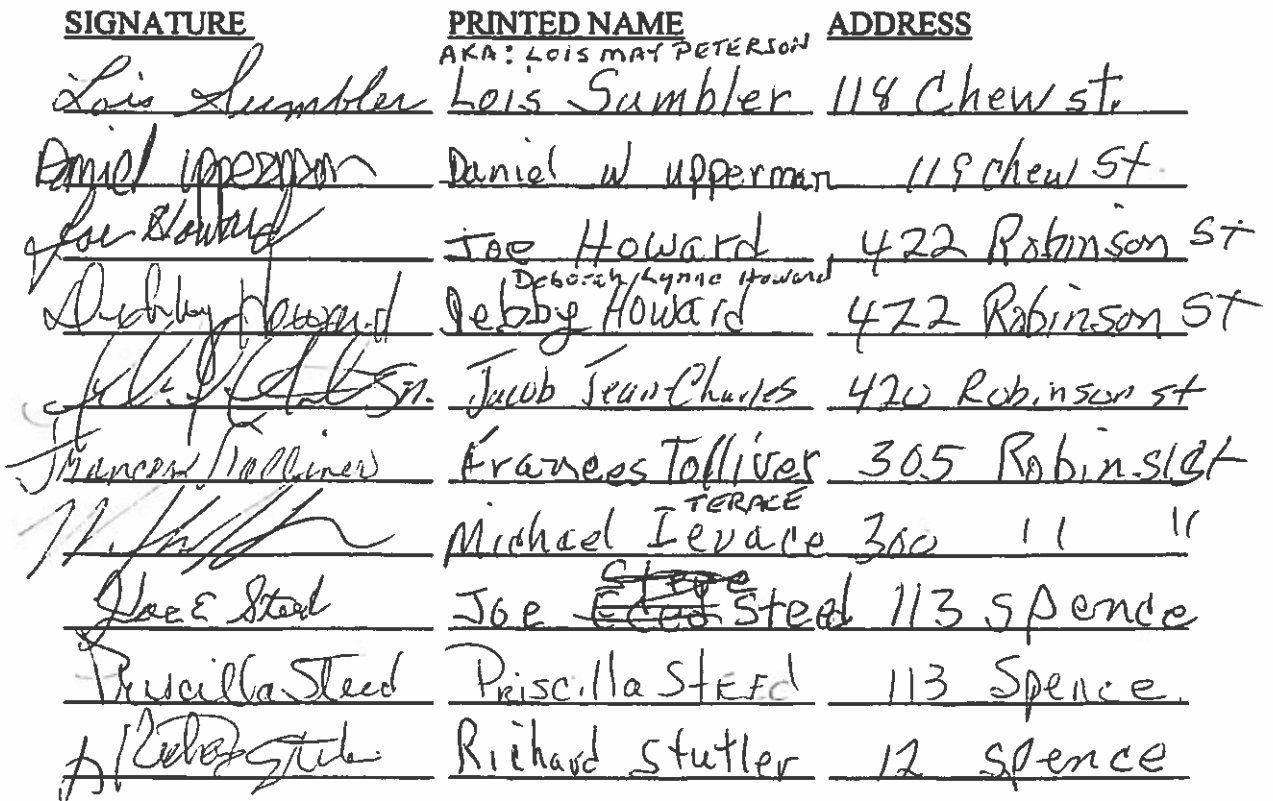 SIGNATURE PRINTED NAME ADDRESS
AKA: LOIS MAY PETERSON
Lois Sumbler Lois Sumbler 118 Chew st.
Daniel Upperman Daniel W upperman 119 chew St
Joe Howard Joe Howard 422 Robinson ST
Deborah Lynne Howard
Debby Howard Debby Howard 422 Robinson ST
Sr. Jacob Jean-Charles 420 Robinson st
Frances Tolliver Frances Tolliver 305 Robins St
TERACE
Michael Ievace 300 " "
Steve
Joe E Steed Joe Steed 113 spence
Priscilla Steed Priscilla STEED 113 Spence
Richard Stutler 12 spence